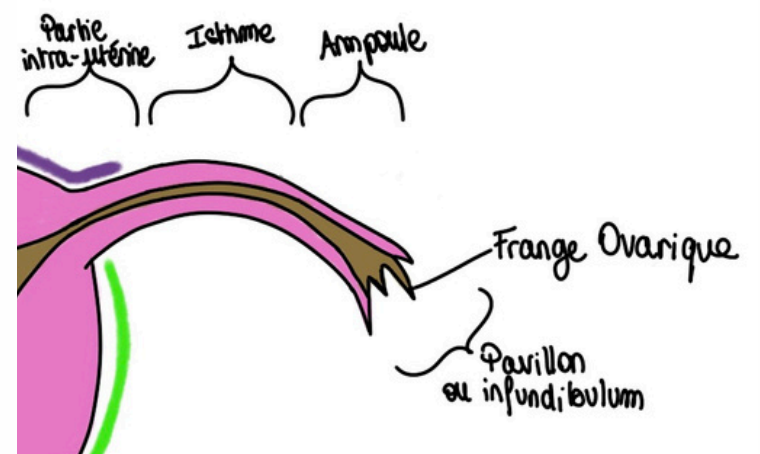 Partie
intra-utérine
Isthme
Ampoule
Frange Ovarique
Pavillon
ou infundibulum